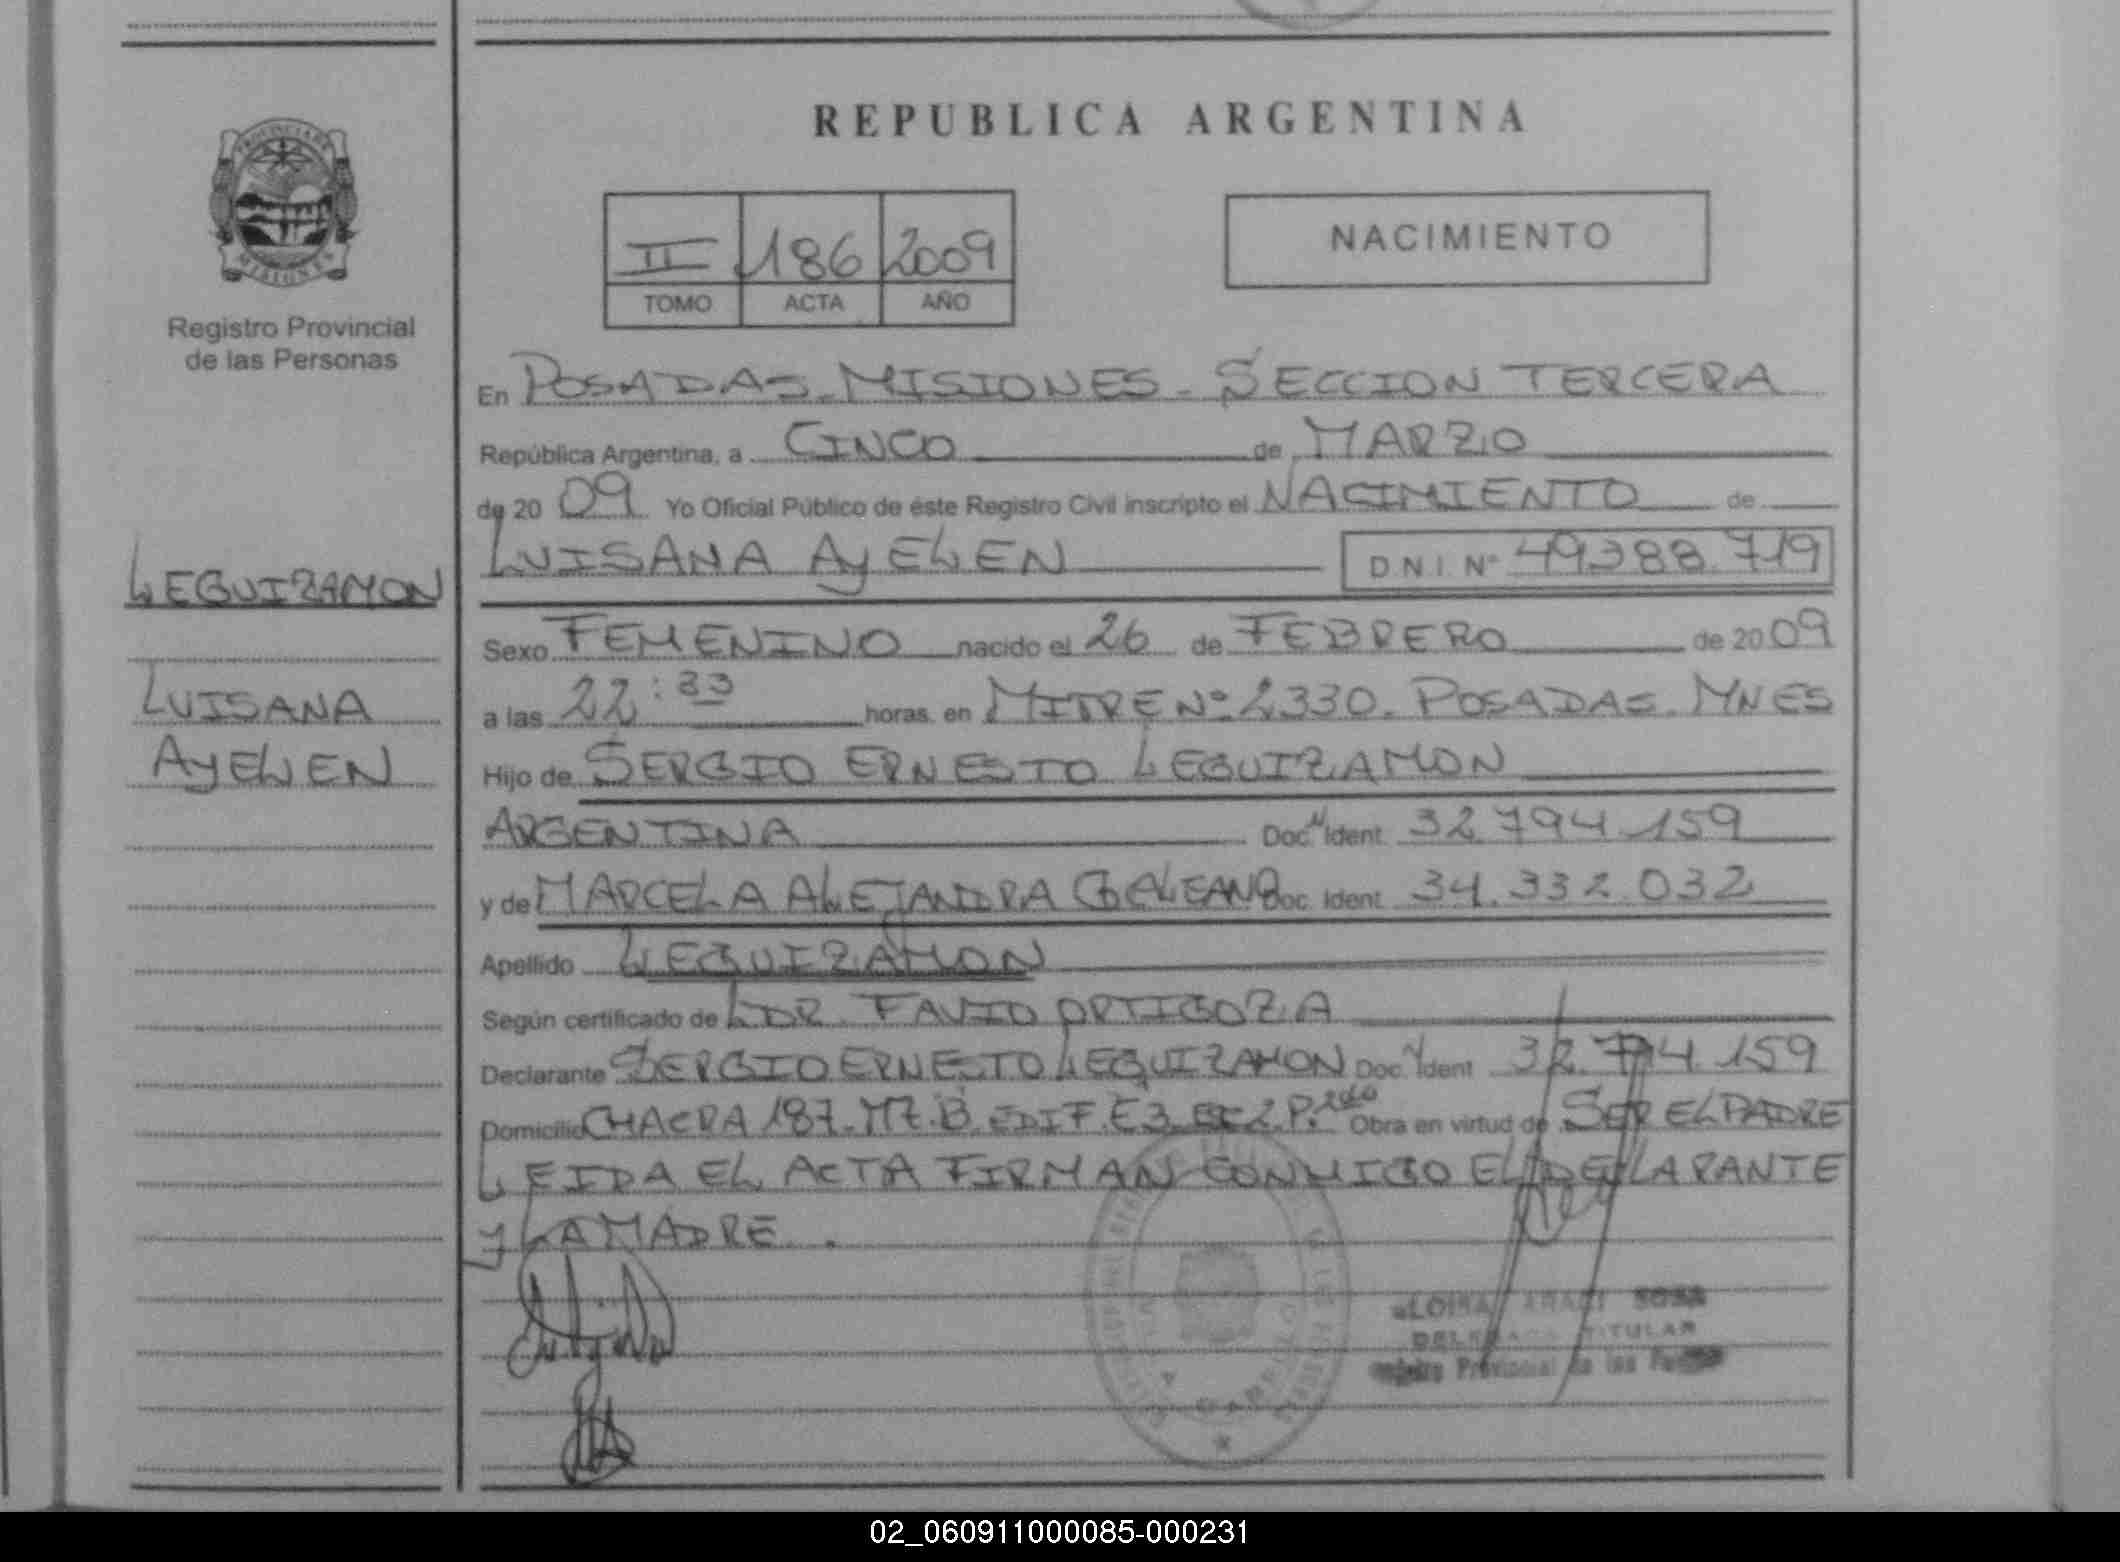 REPUBLICA ARGENTINA
PROVINCIA DE
MISIONES
Registro Provincial
de las Personas
II 186 2009
TOMO ACTA AÑO
NACIMIENTO
En POSADAS - MISIONES - SECCION TERCERA
República Argentina, a CINCO de MARZO
de 20 09 Yo Oficial Público de éste Registro Civil inscripto el NACIMIENTO de
LUISANA AYELEN D.N.I. Nº 49.388.719
LEGUIZAMON
LUISANA
AYELEN
Sexo FEMENINO nacido el 26 de FEBRERO de 20 09
a las 22:33 horas. en MITRE Nº 2330. POSADAS. MNES
Hijo de SERGIO ERNESTO LEGUIZAMON
ARGENTINA Doc. Ident. 32.794.159
y de MARCELA ALEJANDRA GALEANO Doc. Ident. 34.332.032
Apellido LEGUIZAMON
Según certificado de DR. FAVIO ORTIGOZA
Declarante SERGIO ERNESTO LEGUIZAMON Doc. Ident 32.794.159
Domicilio CHACRA 187. MZ. B. EDIF. E3. P. 2do Obra en virtud de SER EL PADRE
LEIDA EL ACTA FIRMAN CONMIGO EL DECLARANTE
Y LA MADRE.
SOSA
TITULAR
Provincial de las
02_060911000085-000231